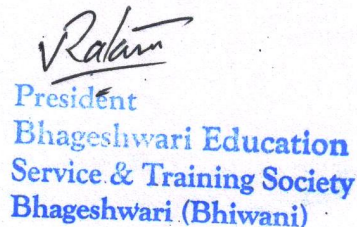 President
Bhageshwari Education
Service & Training Society
Bhageshwari (Bhiwani)